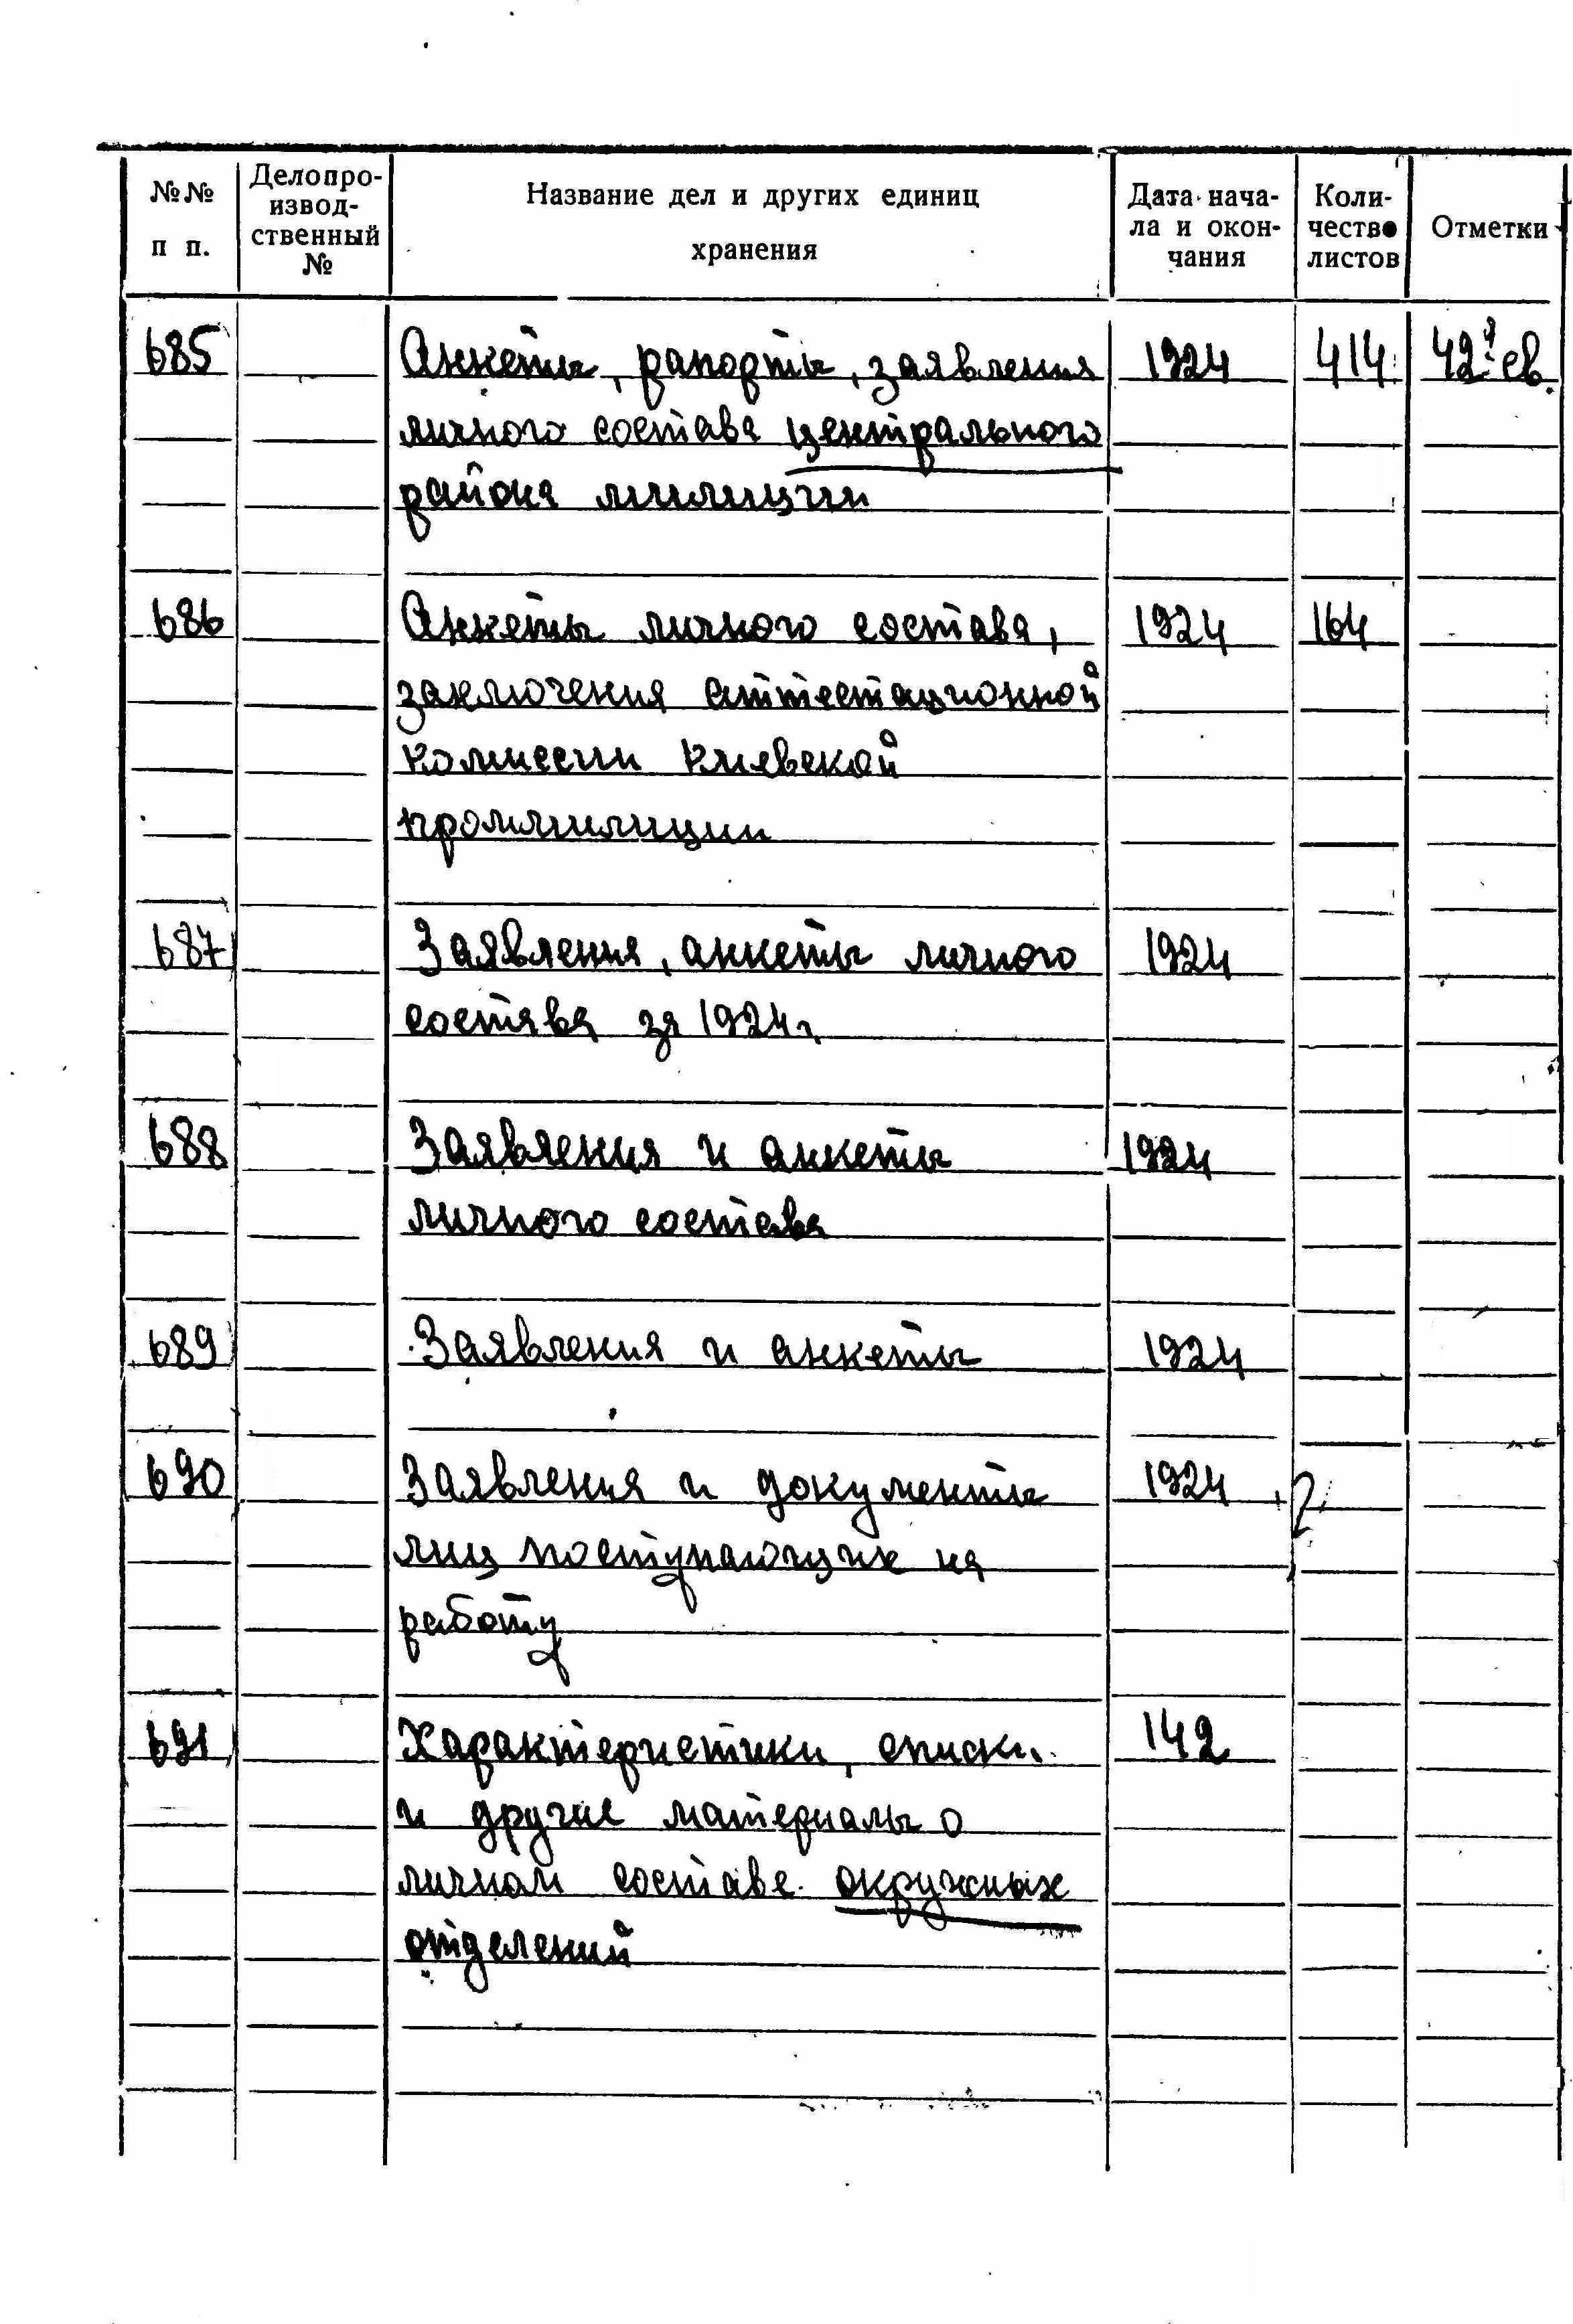 №№ п п.
Делопро-
извод-
ственный
№
Название дел и других единиц
хранения
Дата нача-
ла и окон-
чания
Коли-
чество
листов
Отметки
685 Анкеты, рапорты, заявления 1924 414 42 св.
личного состава центрального
района милиции
686 Анкеты личного состава, 1924 164
заключения аттестационной
комиссии Киевской
проммилиции
687 Заявления, анкеты личного 1924
состава за 1924г.
688 Заявления и анкеты 1924
личного состава
689 Заявления и анкеты 1924
690 Заявления и документы 1924
лиц поступающих на
работу
691 Характеристики, списки 142
и другие материалы о
личном составе окружных
отделений